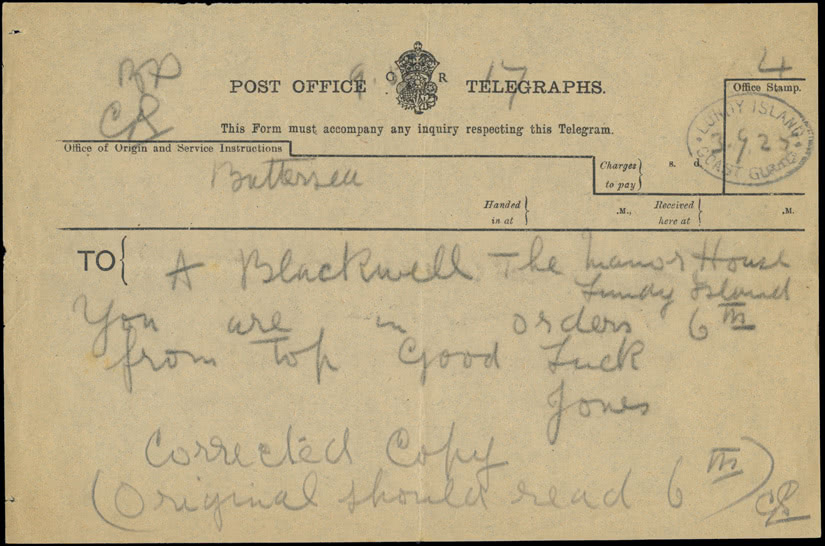 4
BP
CR
9. 17
POST OFFICE G R TELEGRAPHS.
Office Stamp.
This Form must accompany any inquiry respecting this Telegram.
LUNDY ISLAND
9.25
COAST GUARD
Office of Origin and Service Instructions
Battersea
Charges to pay } s. d.
Handed in at } .M., Received here at } .M.
TO { A Blackwell The Manor House
Lundy Island
You are in orders 6th
from top Good Luck
Jones
Corrected Copy
(Original should read 6th) CR